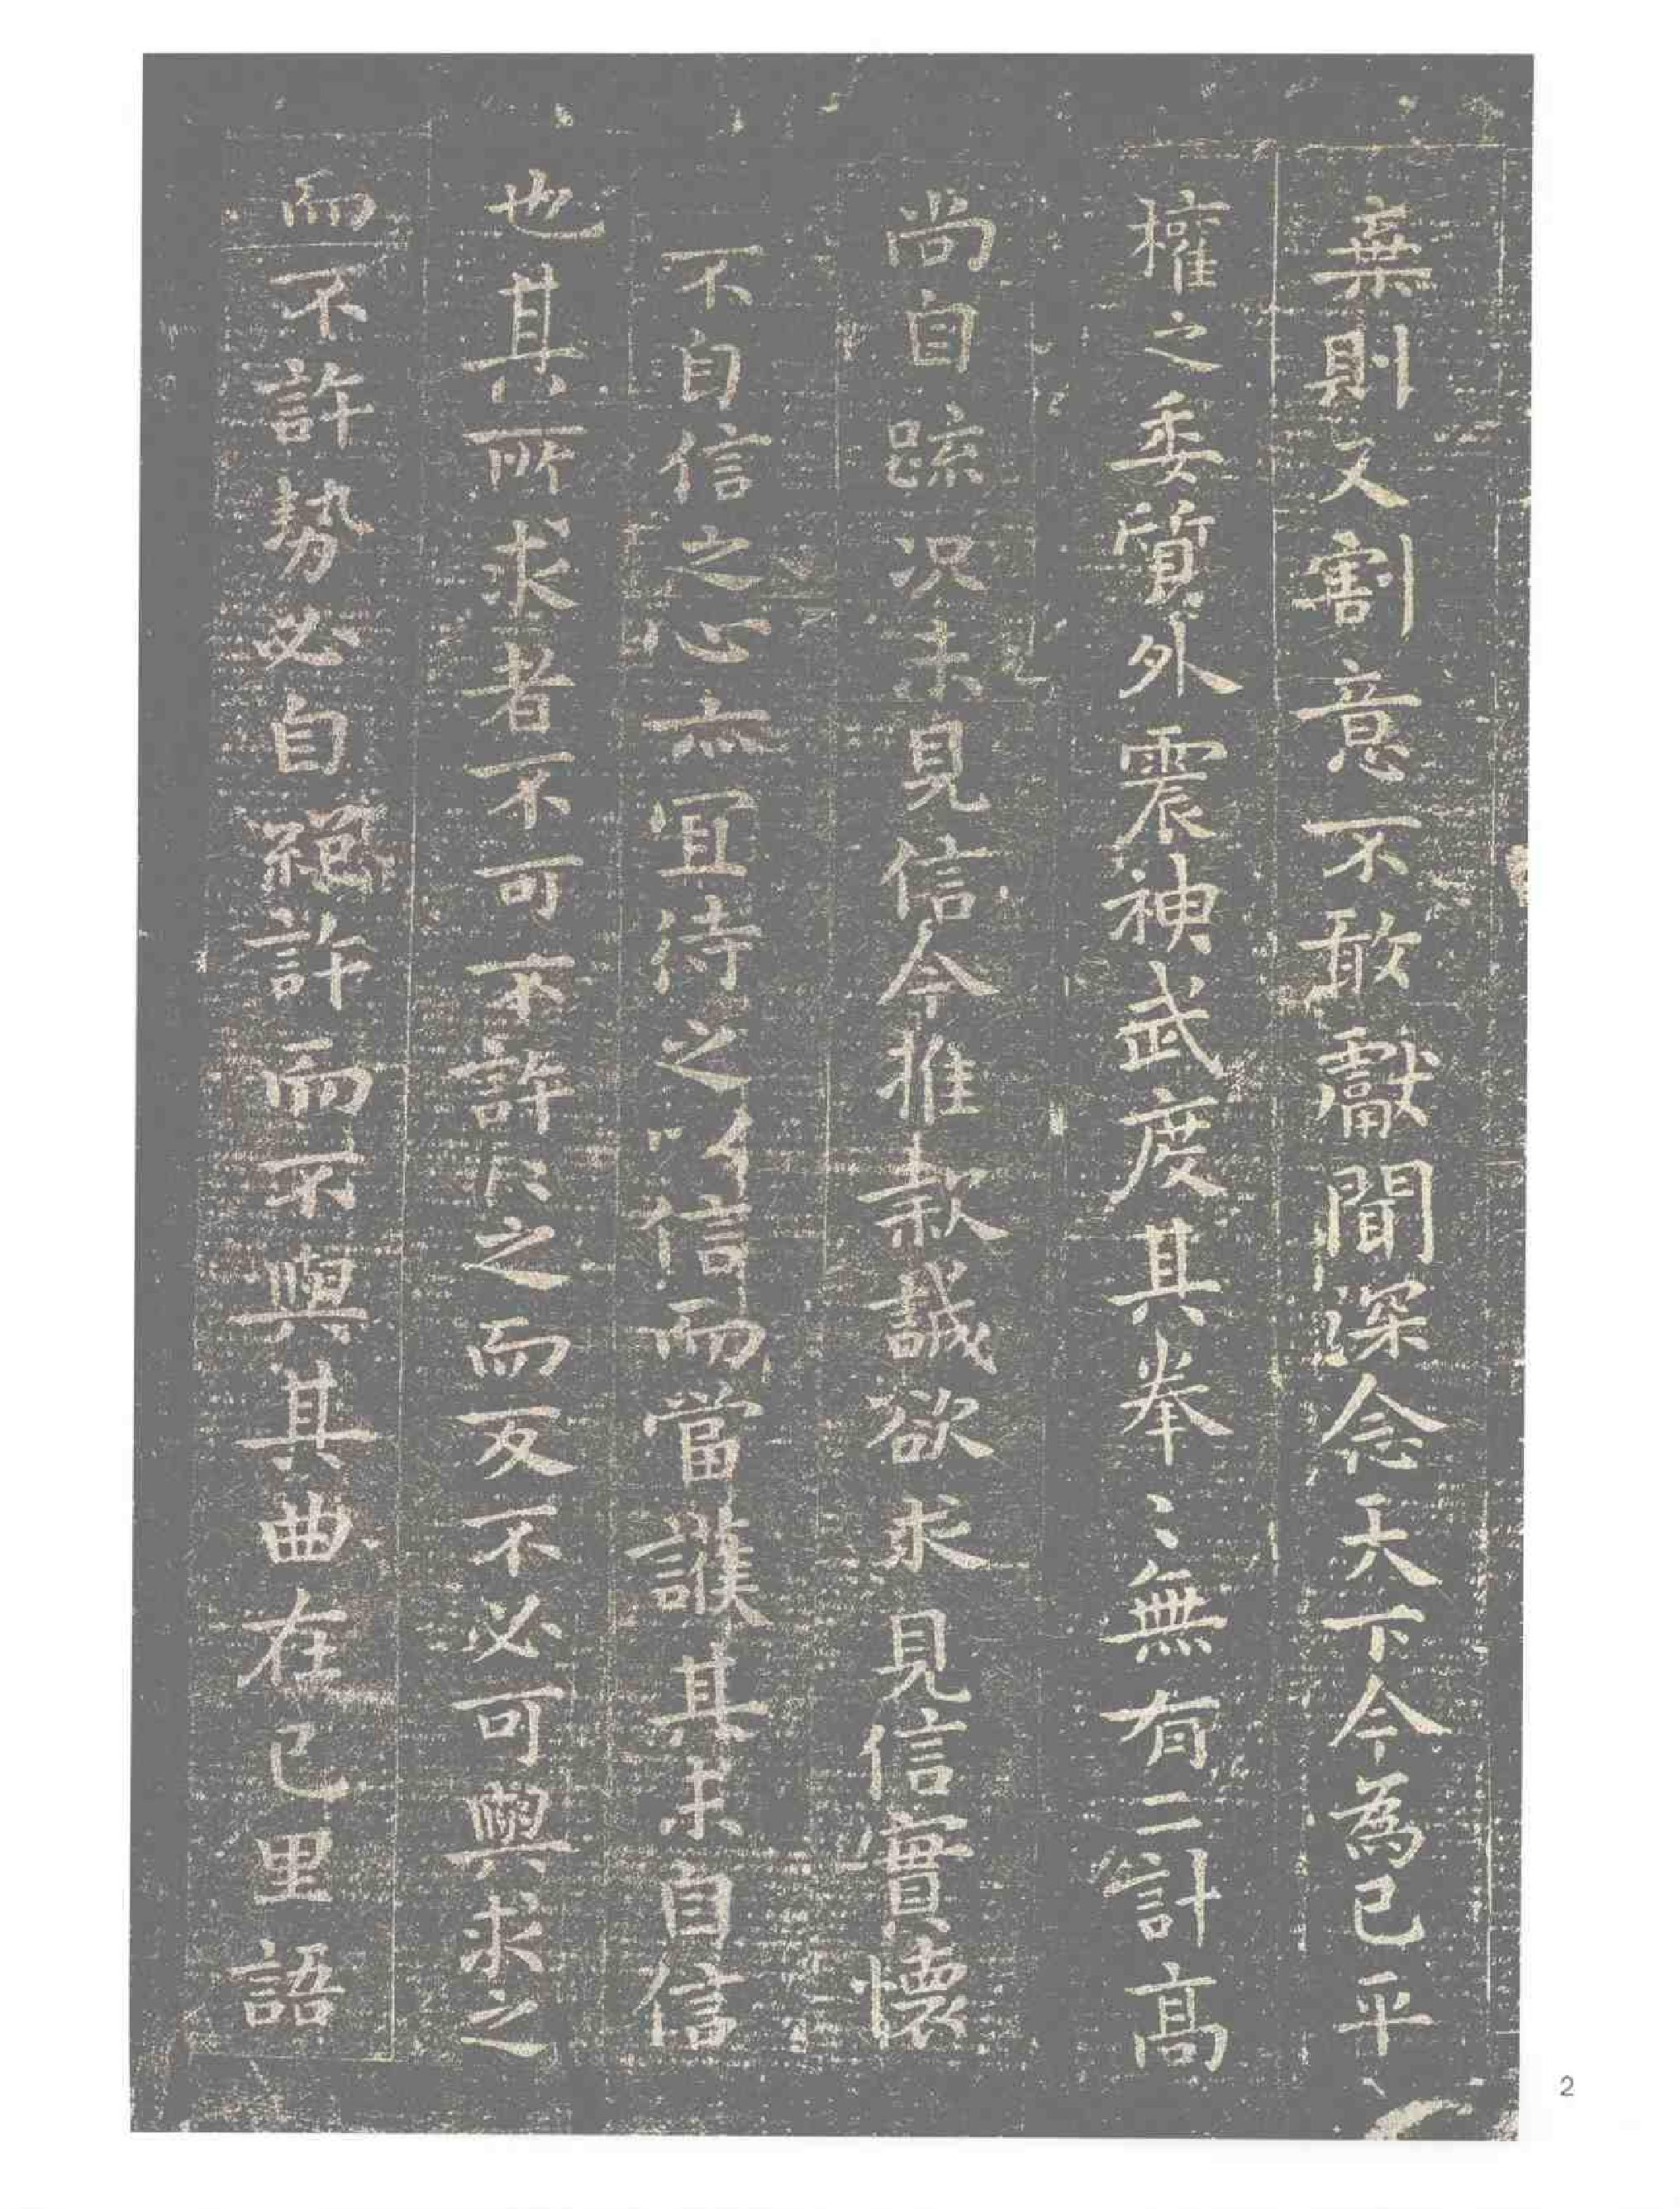 棄則文割意不敢獻聞深念天下今為已平
擢之委質外震神武度其拳〻無有二計高
尚自疏况未見信今推款誠欲求見信實懷
不自信之心亦宜待之以信而當護其未自信
也其所求者不可不許許之而反不必可與求之
而不許勢必自絕許而不與其曲在己里語
2